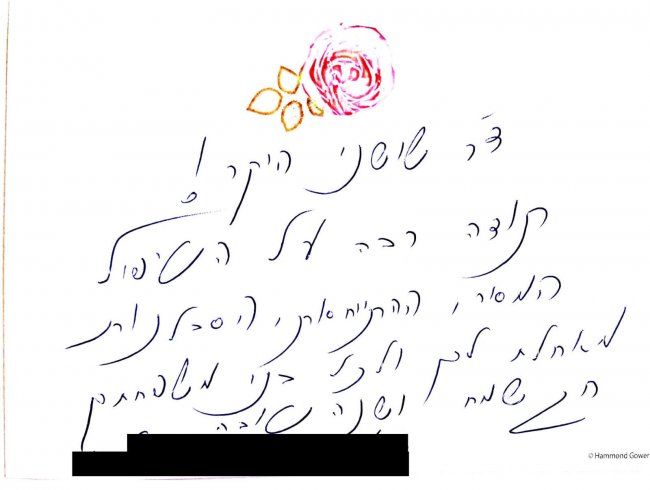 ד"ר שושני היקר!
תודה רבה על הטיפול
המסור, ההתייחסות, הסבלנות
מאחלת לך ולכל בני משפחתך
חג שמח ושנה טובה
© Hammond Gower